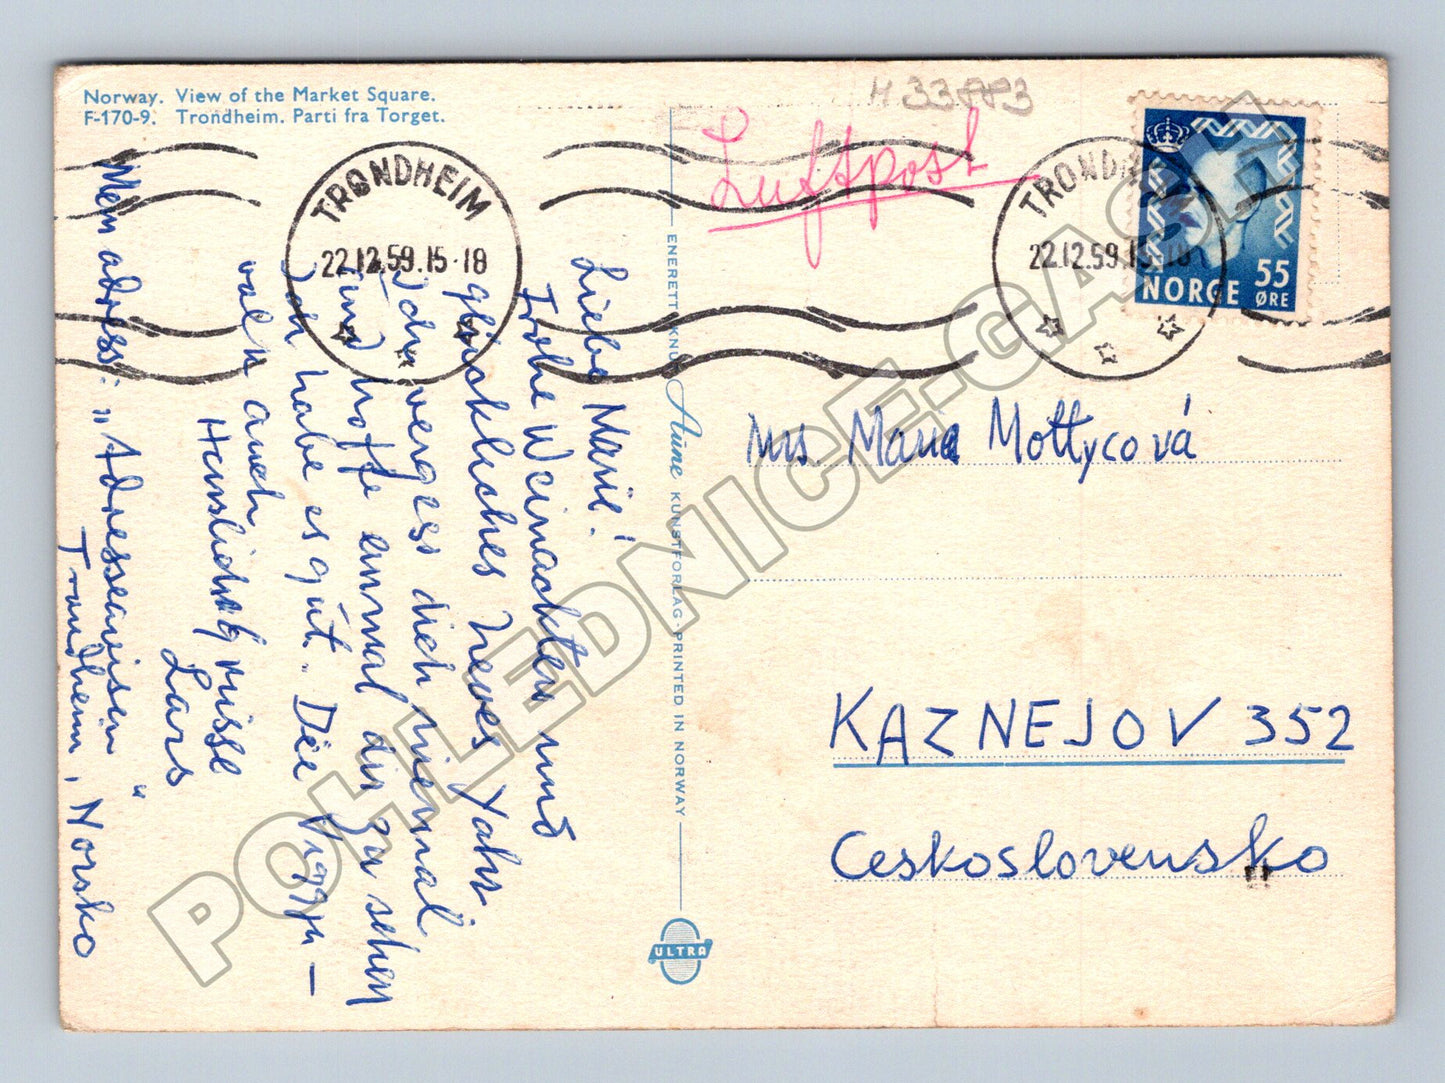 Norway. View of the Market Square.
F-170-9. Trondheim. Parti fra Torget.
H 33
Luftpost
TRONDHEIM
22.12.59.15-18
TRONDHEIM
22.12.59.15-18
55
ØRE
NORGE
Liebe Marie!
Frohe Weinachten und
glückliches neues Yahr
Ich verges dich niemal
und hoffe einmal dir za sehen
Ich habe es gut. Die Viggju –
val u auch
Hersliche grisse
Lars
Men adress: "Adresseavisen"
Trondheim, Norsko
ENERETT KNUT Aune KUNSTFORLAG - PRINTED IN NORWAY
ULTRA
Mrs Maria Mottycová
KAZNEJOV 352
Ceskoslovensko
POHLEDNICE-GASH